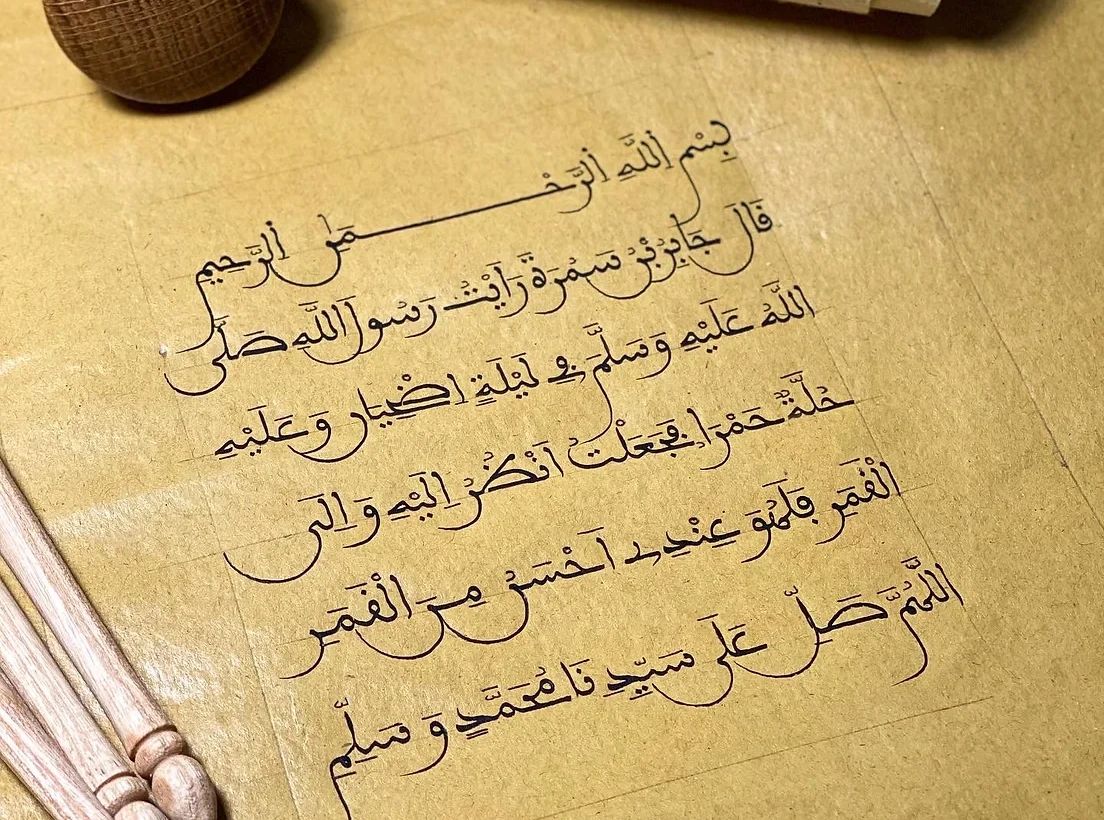 بِسْمِ اللَّهِ الرَّحْمَٰنِ الرَّحِيمِ
قَالَ جَابِرُ بْنُ سَمُرَةَ رَأَيْتُ رَسُولَ اللَّهِ صَلَّى
اللَّهُ عَلَيْهِ وَسَلَّمَ فِي لَيْلَةٍ اضْحِيَانٍ وَعَلَيْهِ
حُلَّةٌ حَمْرَا فَجَعَلْتُ أَنْظُرُ إِلَيْهِ وَإِلَى
الْقَمَرِ فَلَهُوَ عِنْدِي أَحْسَنُ مِنَ الْقَمَرِ
اللَّهُمَّ صَلِّ عَلَى سَيِّدِنَا مُحَمَّدٍ وَسَلِّمِ